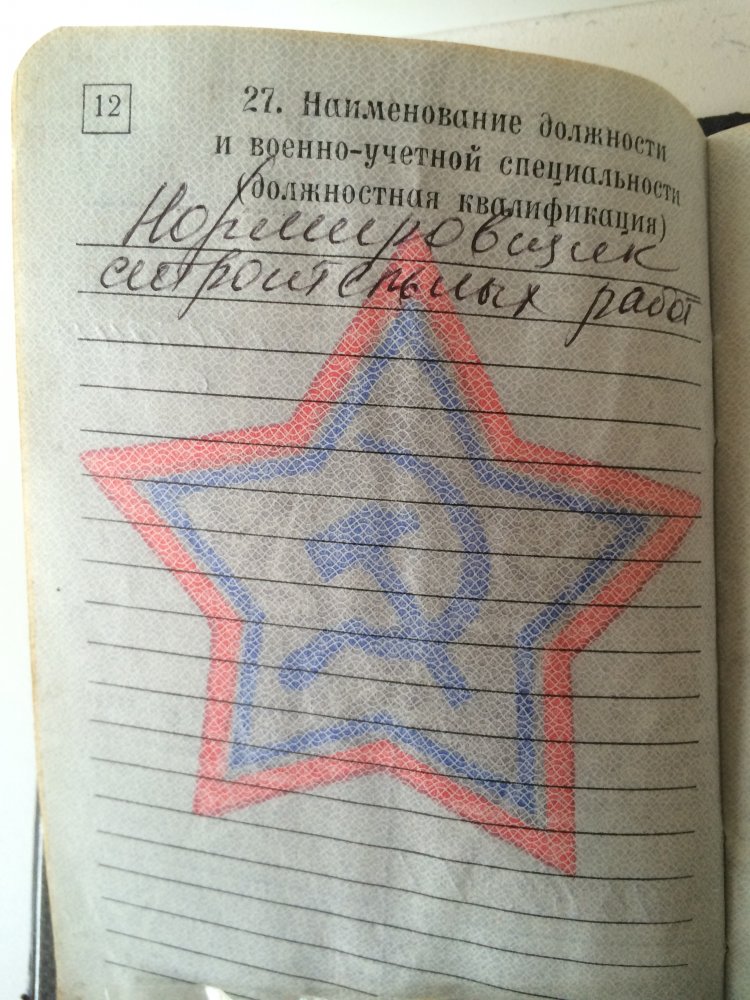 12
27. Наименование должности
и военно-учетной специальности
(должностная квалификация)
Нормировщик
строительных работ